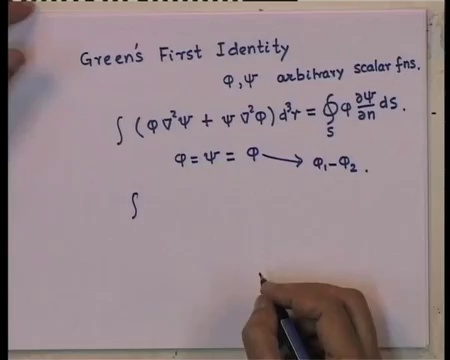 Green's First Identity
φ, ψ arbitrary scalar fns.
∫ (φ ∇²ψ + ψ ∇²φ) d³r = ∮_S φ ∂ψ/∂n dS.
φ = ψ = Φ ⟶ Φ₁ − Φ₂.
∫